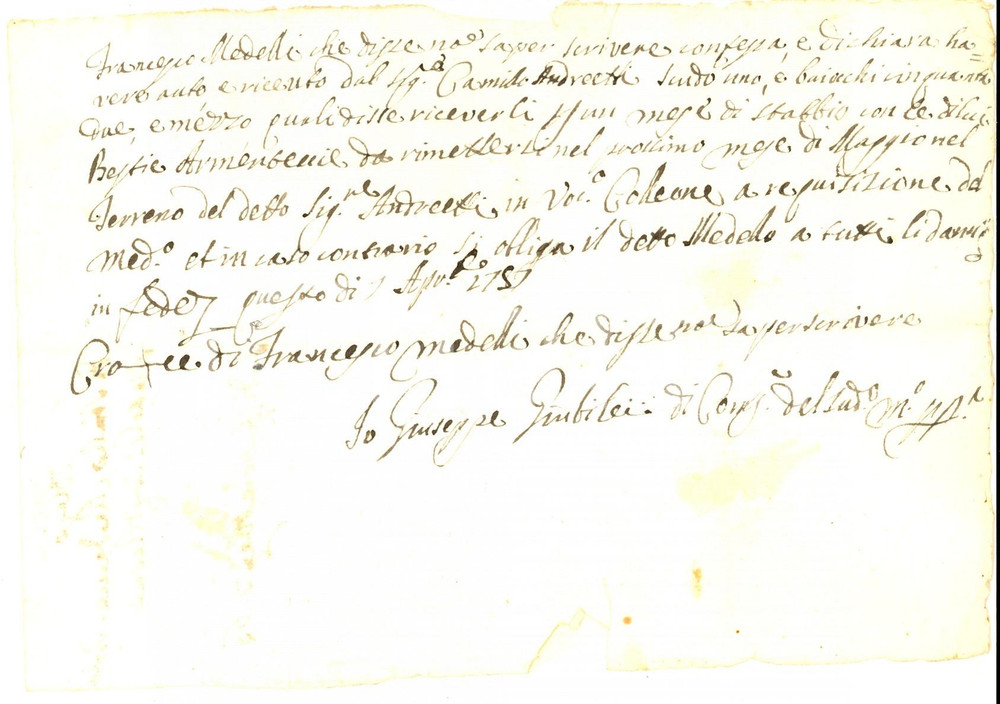 Francesco Medelli che disse no saper scrivere confessa, e dichiara ha-
vere auto, e riceuto dal Sigre Camillo Andreetti scudo uno, e baiochi cinquanta
due, e mezzo quali disse riceverli p un mese di stabbio con le di lui
Bestie Armentecie da rimettersi nel prossimo mese di Maggio nel
Terreno del detto Sigre Andreetti in Voco Colleone a requisizione del
Medo et in caso contrario si obliga il detto Medelli a tutti li danni
in fede questo di 7 Aprile 1757
Cro+ce di Francesco Medelli che disse no saper scrivere
Io Giuseppe Giubilei di Comse del sudo mo ppa